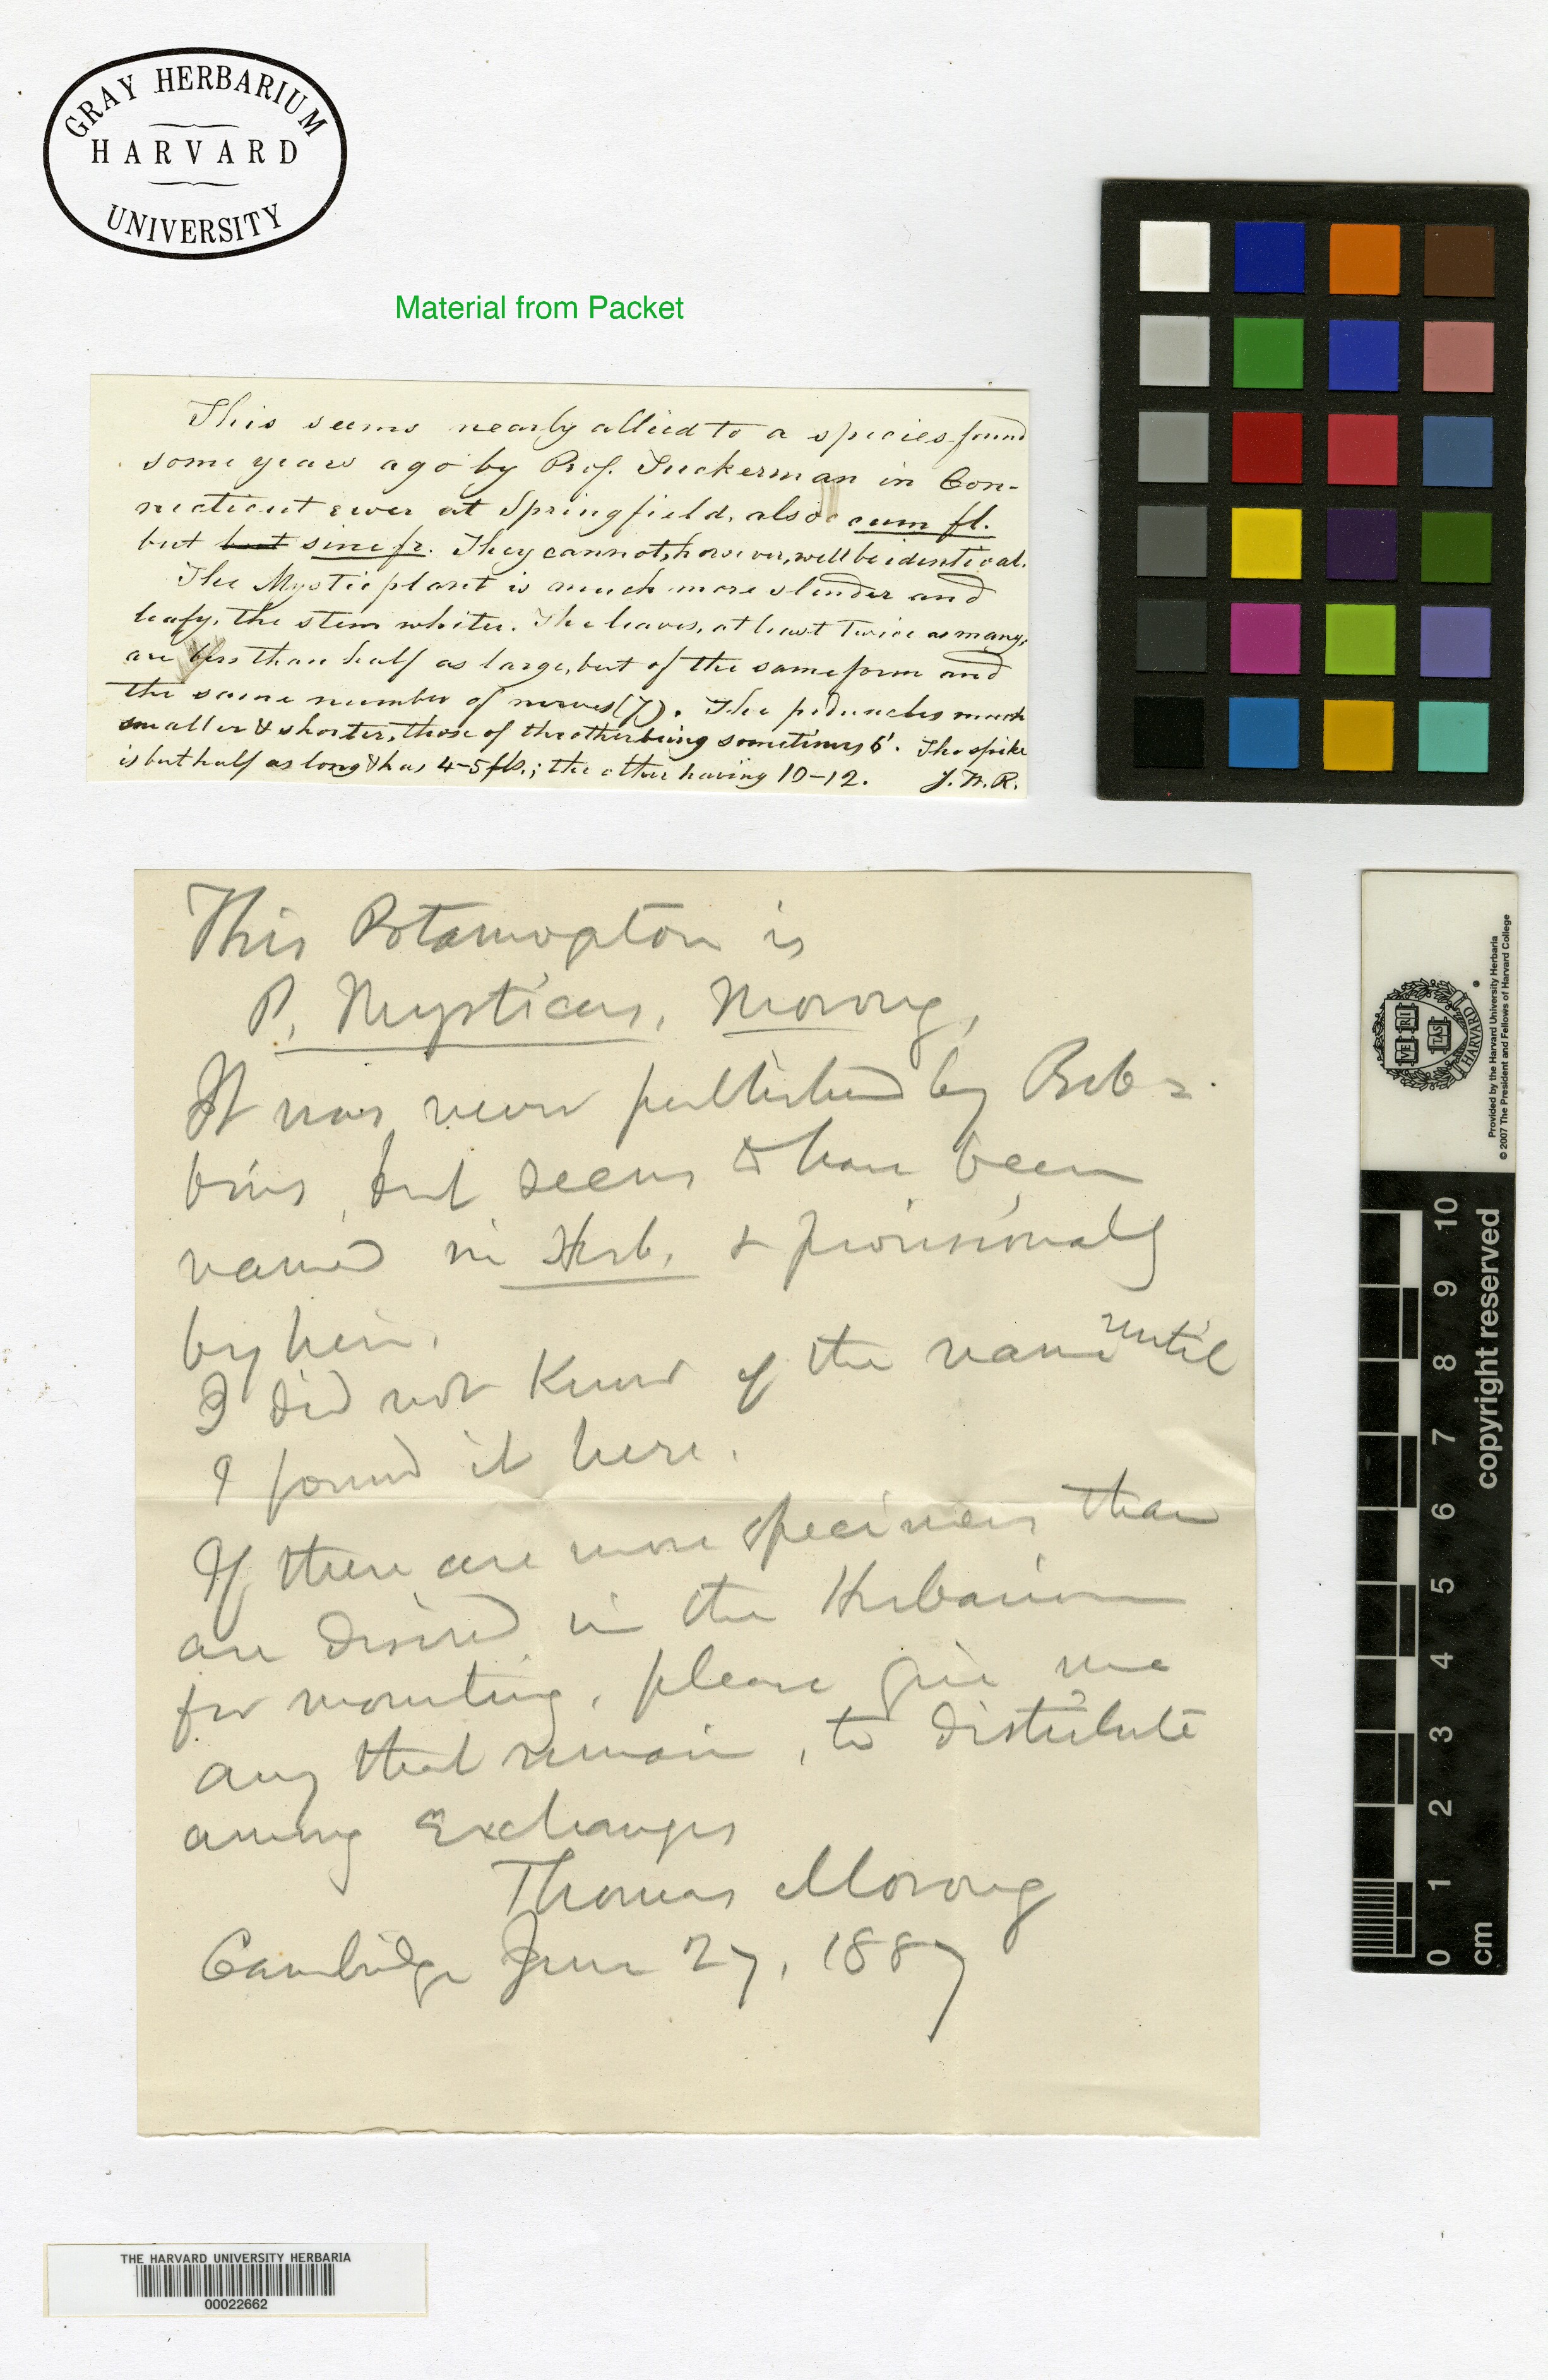 GRAY HERBARIUM
HARVARD
UNIVERSITY
Material from Packet
This seems nearly allied to a species found
some years ago by Prof. Tuckerman in Con-
necticut river at Springfield, also cum fl.
but but sine fr. They cannot, however, well be identical.
The Mystic plant is much more slender and
leafy, the stem whiter. The leaves, at least twice as many,
are less than half as large, but of the same form and
the same number of nerves (7). The peduncles much
smaller & shorter, those of the other being sometimes 6'. The spike
is but half as long & has 4-5 fls.; the other having 10-12. J.W.R.
This Potamogeton is
P. Mysticus, Morong,
It was never published by Rob=
bins, but seems to have been
named in Herb. & provisionally
by him.
I did not know of the name until
I found it here.
If there are more specimens than
are desired in the Herbarium
for mounting, please give me
any that remain, to distribute
among Exchanges
Thomas Morong
Cambridge June 27, 1887
THE HARVARD UNIVERSITY HERBARIA
00022662
Provided by the Harvard University Herbaria
© 2007 The President and Fellows of Harvard College
VE RI TAS
HARVARD
copyright reserved
10 9 8 7 6 5 4 3 2 1 0
cm